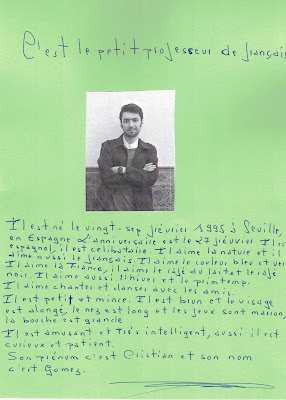 C'est le petit professeur de français
Il est né le vingt-sep 1995 à Seville,
en Espagne L'anniversaire est le 27 Il est
espagnol, il est celibataire. Il aime la nature et il
aime aussi le français. Il aime le couleur bleu et vert
Il aime la France, il aime le café au lait et le café
noir. Il aime aussi l'hiver et le printemp.
Il aime chanter et danser avec les amis.
Il est petit et mince. Il est brun et le visage
est alongé, le nez est long et les yeux sont marron,
la bouche est grande
Il est amusant et très intelligent, aussi il est
curieux et patient.
Son prénom c'est Cristian et son nom
c'est Gomez.